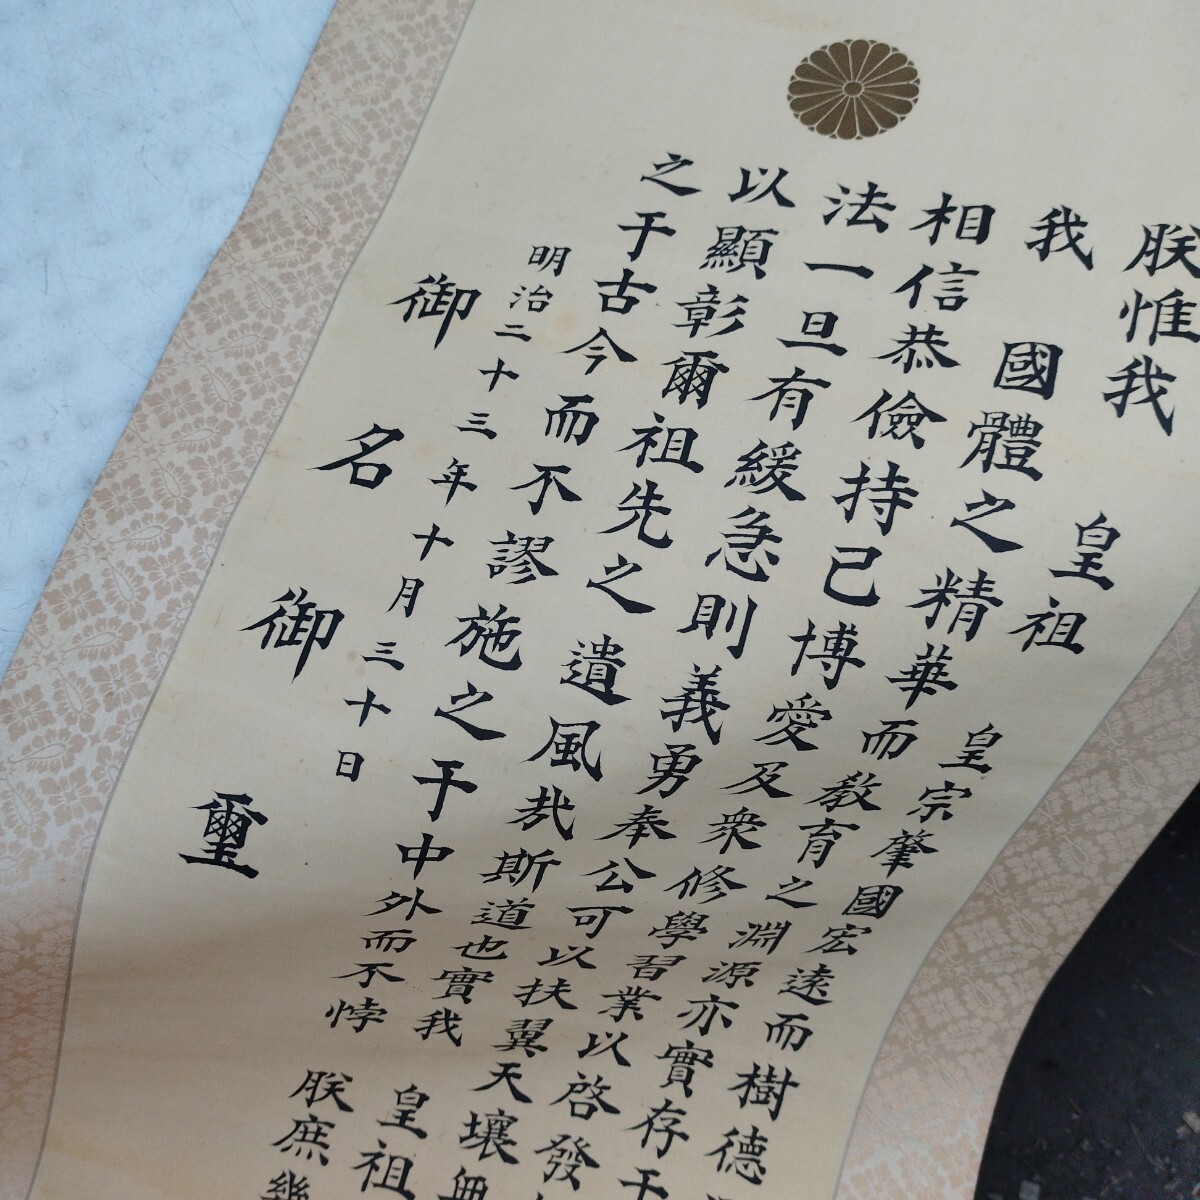 朕惟我　皇祖　皇宗肇國宏遠而樹德
我　國體之精華而教育之淵源亦實存于
相信恭儉持己博愛及衆修學習業以啓發
法一旦有緩急則義勇奉公可以扶翼天壤無
以顯彰爾祖先之遺風哉斯道也實我　皇祖
之于古今而不謬施之于中外而不悖　朕庶幾
明治二十三年十月三十日
御名御璽